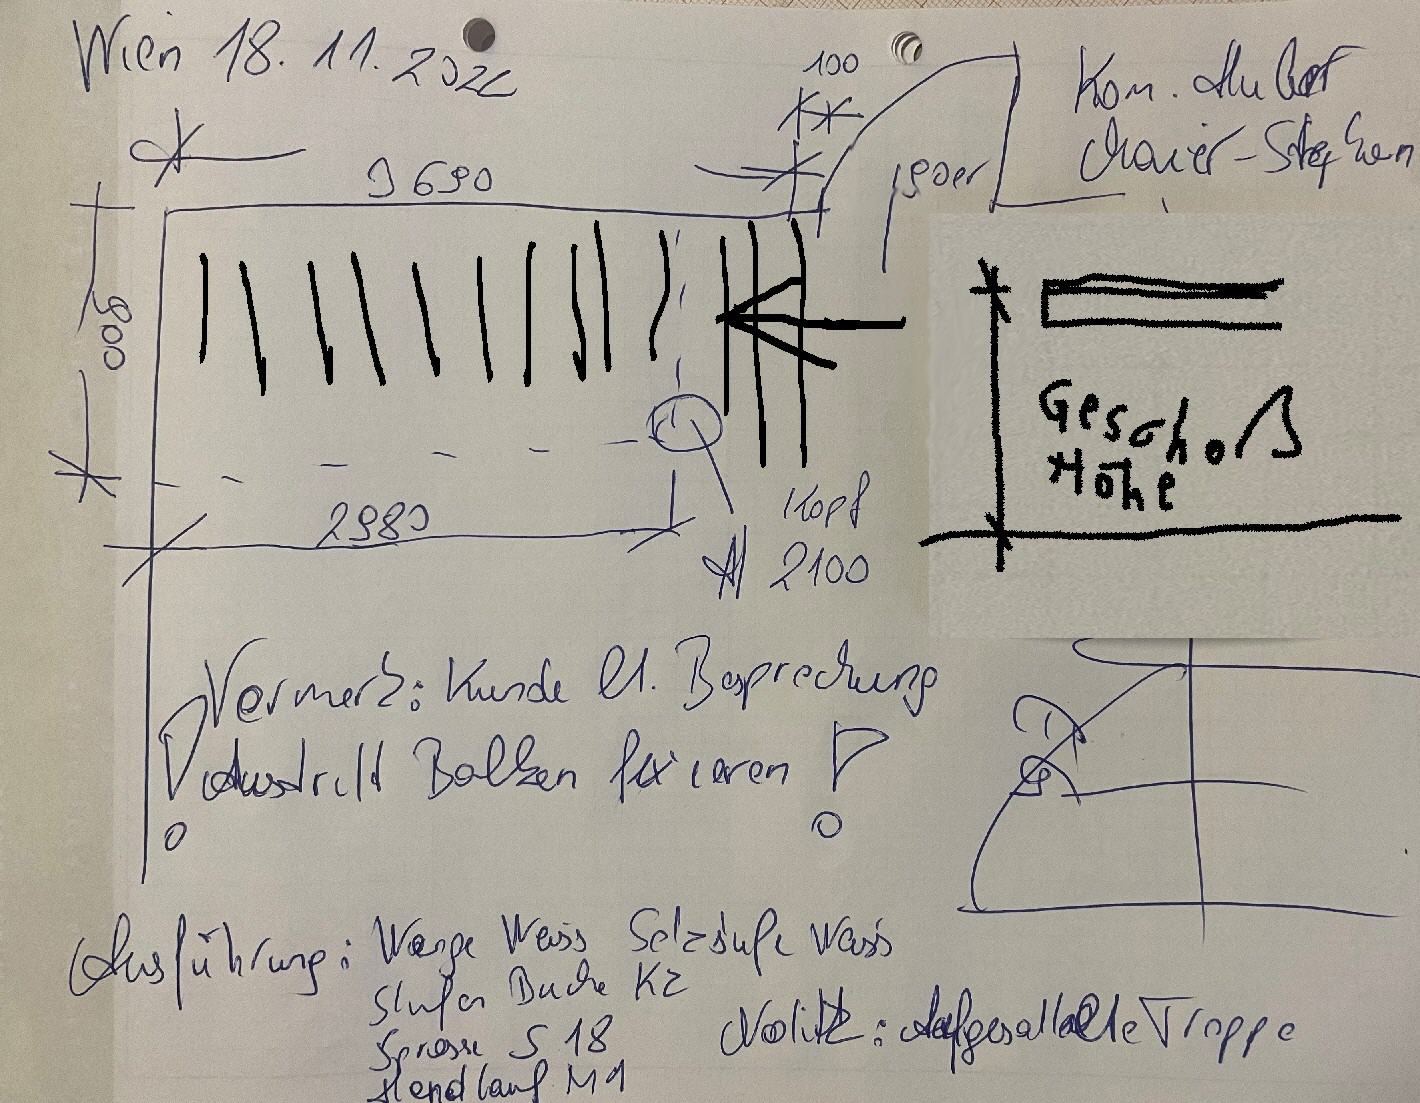 Wien 18. 11. 202
100
Kom. Hubert
Maier-Stephan
3690
90er
900
Geschoß
Höhe
2980
Kopf
A 2100
Vermerk: Kunde lt. Besprechung
! Austritt Balken fixieren !
Ausführung: Wange Weiss Setzstufe Weiss
Stufen Buche KZ
Sprosse S 18
Handlauf M1
Notitz: Aufgesattelte Treppe